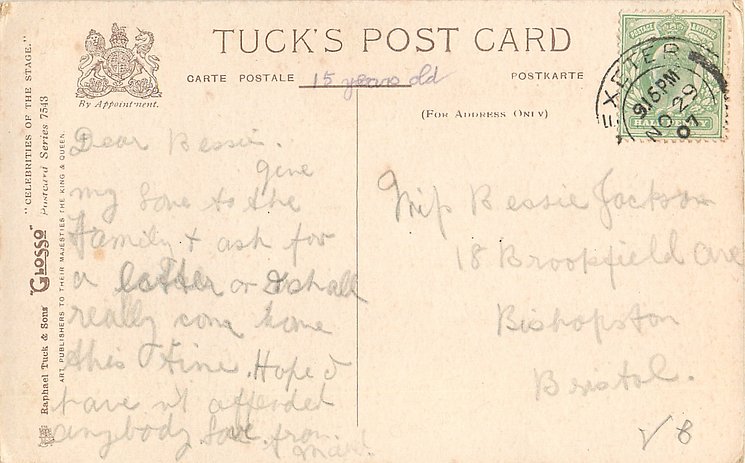 TUCK'S POST CARD
CARTE POSTALE
15 years old
POSTKARTE
By Appointment.
(FOR ADDRESS ONLY)
"CELEBRITIES OF THE STAGE."
"GLOSSO" Postcard Series 7543
Raphael Tuck & Sons'
ART PUBLISHERS TO THEIR MAJESTIES THE KING & QUEEN.
POSTAGE REVENUE
HALFPENNY
EXETER
915PM
NO 29
07
Dear Bessie.
give
my love to the
Family & ash for
a letter or I shall
really come home
this time. Hope I
have n't affended
anybody. Love from
Miss Bessie Jackson
18 Brookfield Ave
Bishopston
Bristol.
V 8